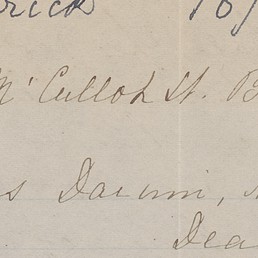 rick 18
M'Culloh St. B
s Darwin,
Dea